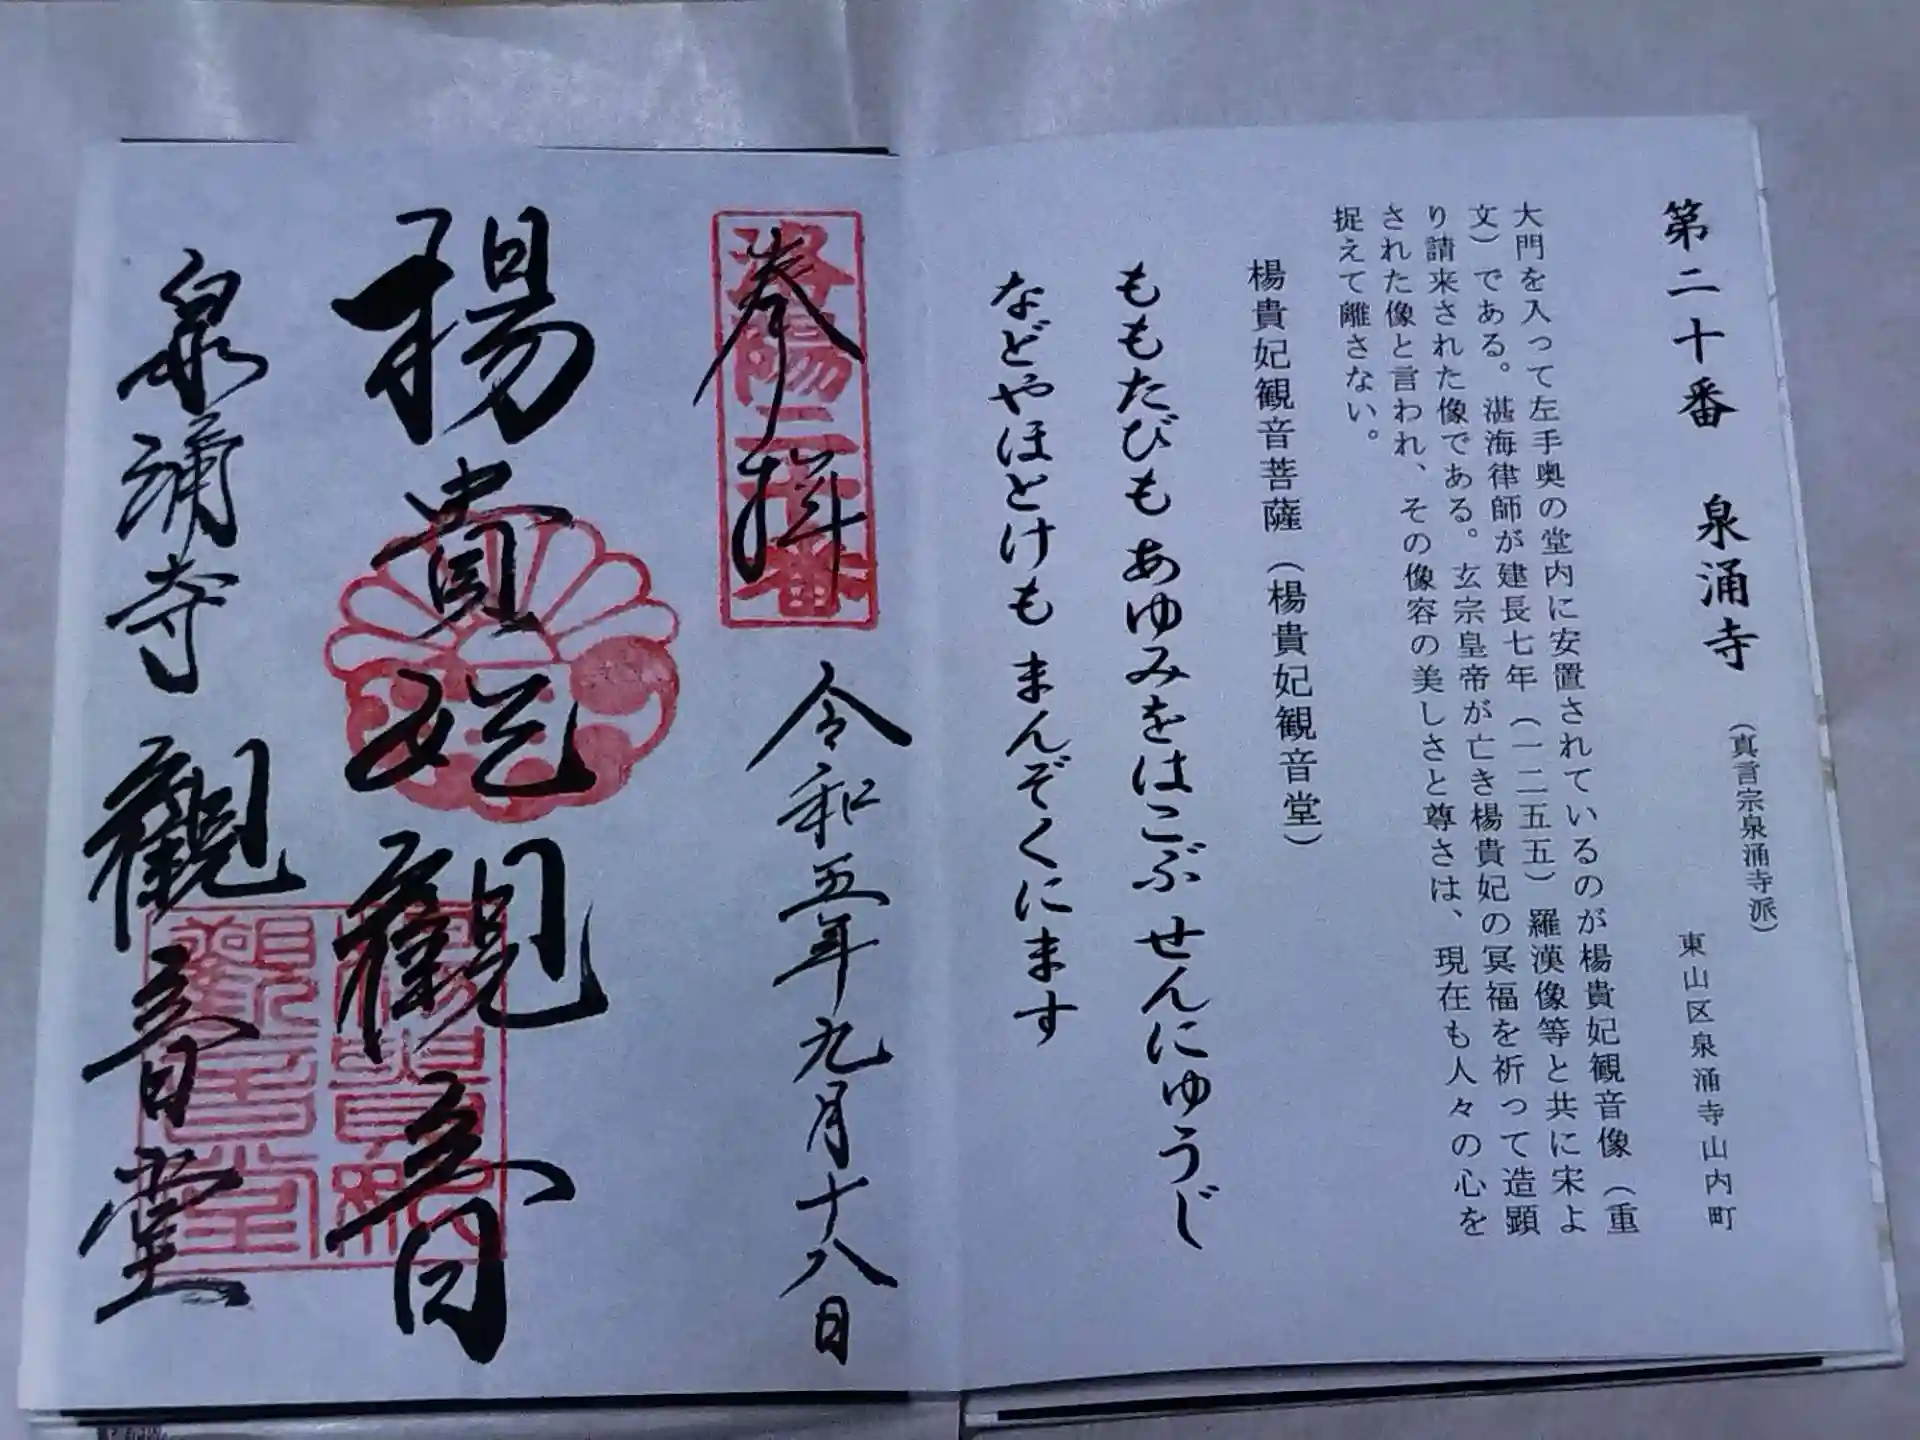 第二十番 泉涌寺 （真言宗泉涌寺派）
東山区泉涌寺山内町
大門を入って左手奥の堂内に安置されているのが楊貴妃観音像（重
文）である。湛海律師が建長七年（一二五五）羅漢像等と共に宋よ
り請来された像である。玄宗皇帝が亡き楊貴妃の冥福を祈って造顕
された像と言われ、その像容の美しさと尊さは、現在も人々の心を
捉えて離さない。
楊貴妃観音菩薩（楊貴妃観音堂）
ももたびも あゆみをはこぶ せんにゆうじ
などやほとけも まんぞくにます
洛陽二十番
奉拝
令和五年九月十八日
楊貴妃観音
泉涌寺 観音堂